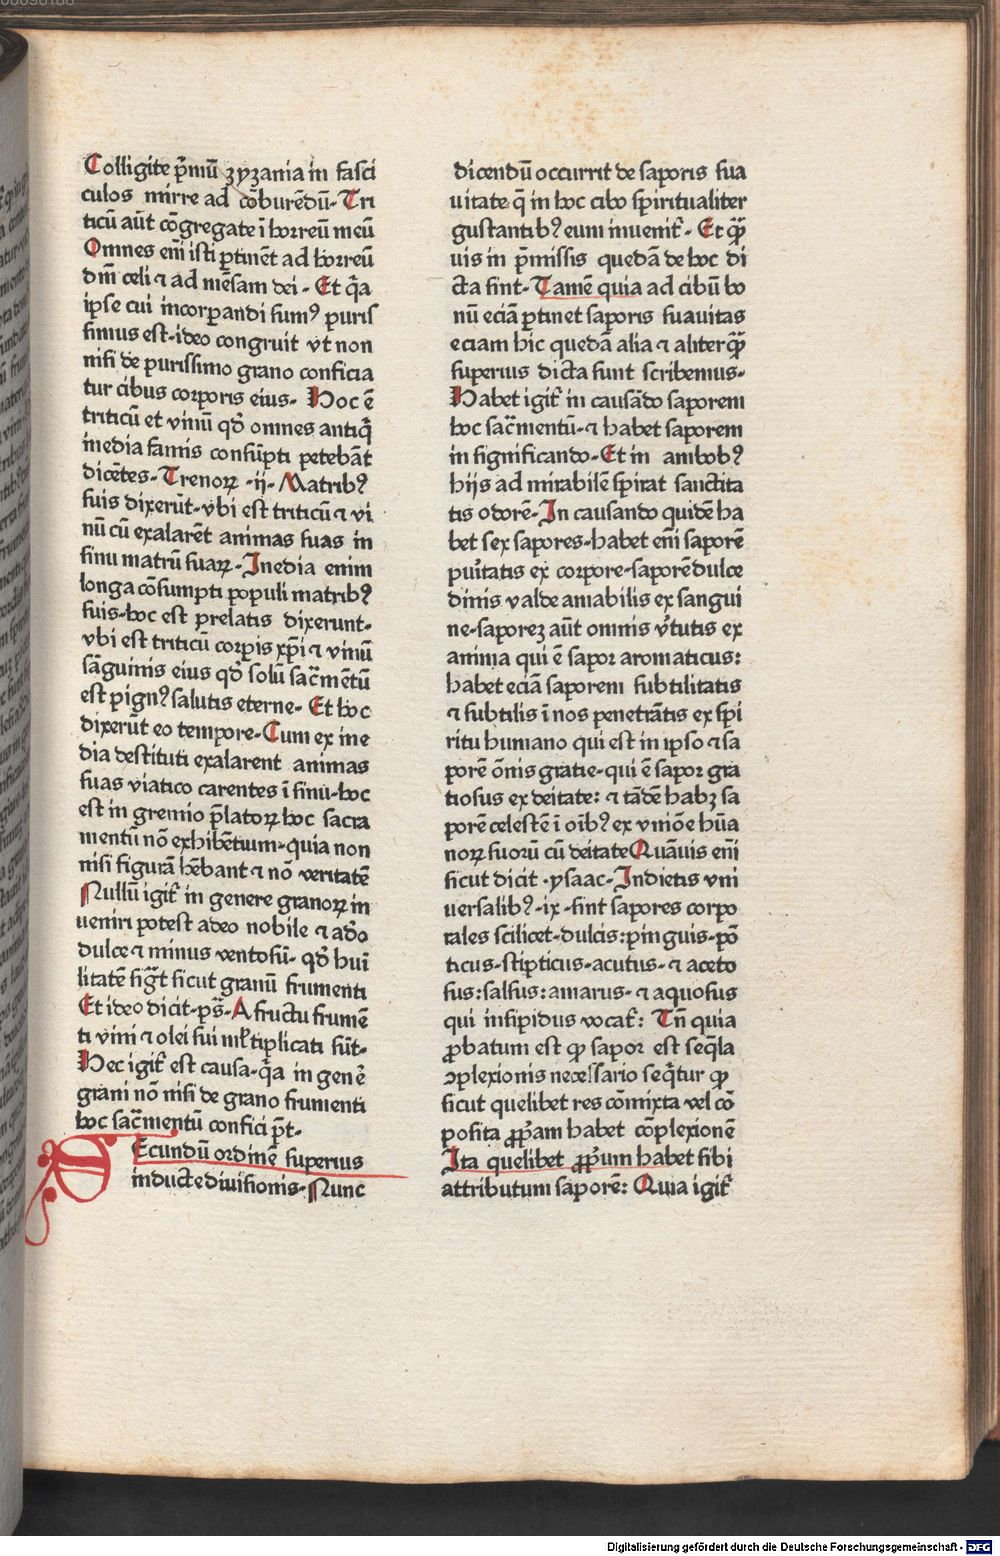 Colligite p̄mū zyzania in fasci
culos mirre ad cōburēdū. Tri
ticū aūt cōgregate ī horreū meū
Omnes em̄ isti ꝑtinēt ad horreū
dm̄ celi ⁊ ad mēsam dei. Et q̄a
ipse cui incorꝑandi sumꝰ puris
simus est. ideo congruit vt non
nisi de purissimo grano conficia
tur cibus corporis eius. Hoc ē
triticū et vinū qd̓ omnes antiq̄
inedia famis consūpti petebāt
dicētes. Trenoꝝ .ii. Matribꝰ
suis dixerūt. vbi est triticū ⁊ vi
nū cū exalarēt animas suas in
sinu matrū suaꝝ. Inedia enim
longa cōsumpti populi matribꝰ
suis. hoc est prelatis dixerunt.
vbi est triticū corꝑis xp̄i ⁊ vinū
sāguinis eius qd̓ solū sac̄mētū
est pignꝰ salutis eterne. Et hoc
dixerūt eo tempore. Cum ex ine
dia destituti exalarent animas
suas viatico carentes ī sinu. hoc
est in gremio p̄latoꝝ hoc sacra
mentū nō exhibētium. quia non
nisi figurā hēbant ⁊ nō veritatē
Nullū igit̓ in genere granoꝝ in
veniri potest adeo nobile ⁊ adō
dulce ⁊ minus ventosū. qd̓ huī
litatē sigt̄ sicut granū frumenti
Et ideo dicit. ps̄. A fructu frumē
ti vini ⁊ olei sui ml̓tiplicati sūt.
Hec igit̓ est causa. q̄a in gen̓e
grani nō nisi de grano frumenti
hoc sac̄mentū confici p̄t.
SEcundū ordinē superius
inducte divisionis. Nunc
dicendū occurrit de saporis sua
uitate q̄ in hoc cibo spiritualiter
gustantibꝰ eum inuenit̓. Et q̄ꝫ
uis in p̄missis quedā de hoc di
cta sint. Tamē quia ad cibū bo
nū eciā ꝑtinet saporis suauitas
eciam hic quedā alia ⁊ aliter q̄ꝫ
superius dicta sunt scribemus.
Habet igit̓ in causādo saporem
hoc sac̄mentū. ⁊ habet saporem
in significando. Et in ambobꝰ
hijs ad mirabilē spirat sanctita
tis odorē. In causando quidē ha
bet sex sapores. habet em̄ saporē
pui̓tatis ex corpore. saporē dulce
dinis valde amabilis ex sangui
ne. saporeꝫ aūt omnis v̓tutis ex
anima qui ē sapor aromaticus:
habet eciā saporem subtilitatis
⁊ subtilis ī nos penetrātis ex spi
ritu humano qui est in ipso ⁊ sa
porē ōnis gratie. qui ē sapor gra
tiosus ex deitate: ⁊ tādē habꝫ sa
porē celestē ī oībꝰ ex vniōe hūa
noꝝ suorū cū deitate Quāuis em̄
sicut dicit .ysaac. In dietis vni
uersalibꝰ .ix. sint sapores corpo
rales scilicet. dulcis: pinguis. pō
ticus. stipticus. acutus. ⁊ aceto
sus: salsus: amarus. ⁊ aquosus
qui insipidus vocat̓: Tn̄ quia
ꝓbatum est ꝙ sapor est seq̄la
ↄplexionis necessario seq̄tur ꝙ
sicut quelibet res cōmixta vel cō
posita ꝓpͥam habet cōplexionē
Ita quelibet ꝓpͥum habet sibi
attributum saporē: Quia igit̓
Digitalisierung gefördert durch die Deutsche Forschungsgemeinschaft - DFG